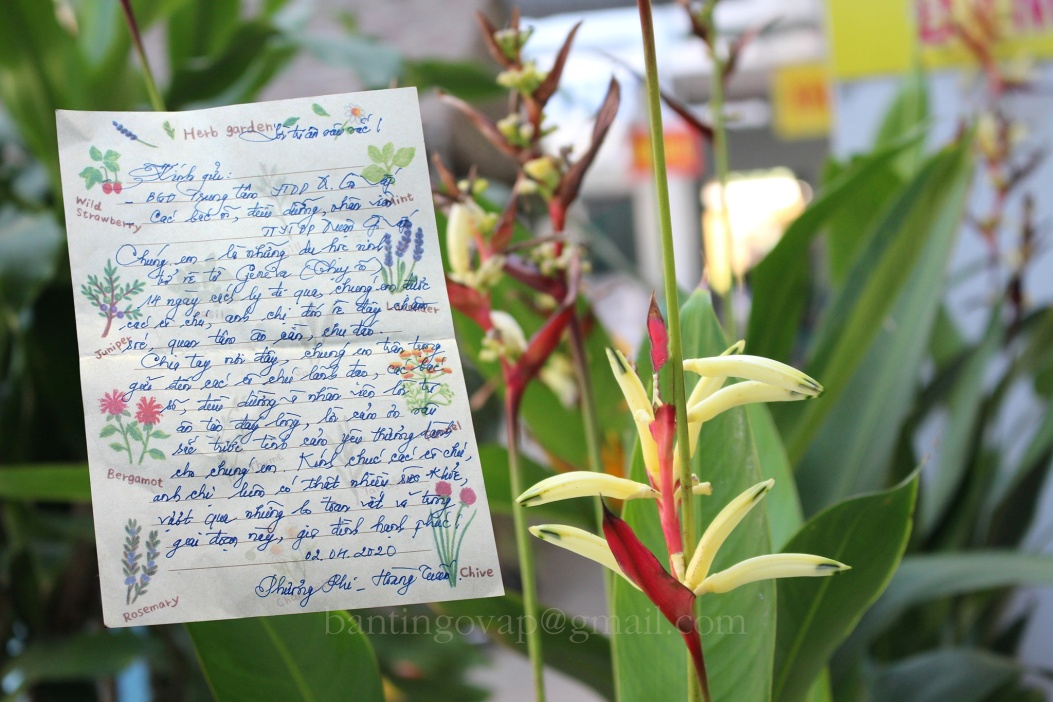 Herb garden
Thư tri ân sâu sắc!
Kính gửi:
- BGĐ Trung tâm YTDP Q. Gò Vấp
- Các bác sĩ, điều dưỡng, nhân viên
TTYTDP Quận Gò Vấp
Mint
Wild
Strawberry
Chúng em là những du học sinh
trở về từ Geneva (Thụy Sĩ)
14 ngày cách ly đã qua, chúng em được
Lavender
các cô chú, anh chị đón về đây chăm
sóc, quan tâm ân cần, chu đáo.
Juniper
Chia tay nơi đây, chúng em trân trọng
gửi đến các cô chú lãnh đạo, các bác
sĩ, điều dưỡng & nhân viên lời tri
ân từ đáy lòng, lời cảm ơn sâu
sắc trước tình cảm yêu thương dành
cho chúng em. Kính chúc các cô chú,
Bergamot
anh chị luôn có thật nhiều sức khỏe,
vượt qua những lo toan vất vả trong
giai đoạn này, gia đình hạnh phúc
02.04.2020
Phương Phi - Hoàng Tuấn
Chive
Rosemary
bantingovap@gmail.com